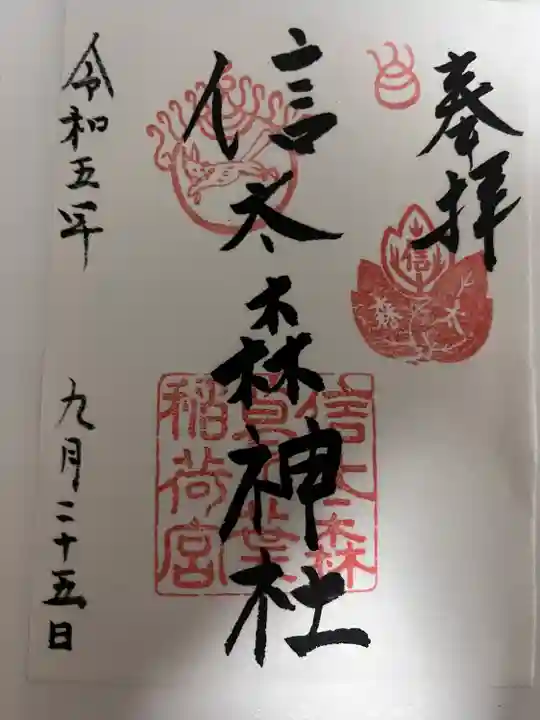 奉拝
信
信太森
信太森神社
信太森
葛葉
稲荷宮
令和五年
九月二十五日